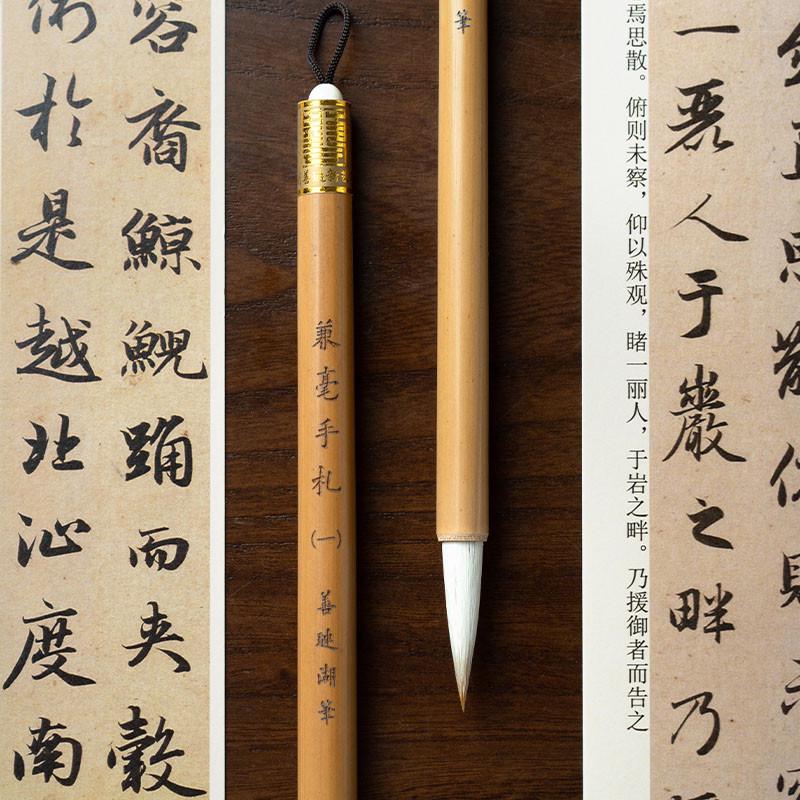 一麗人于巖之畔乃
焉思散。俯则未察，仰以殊观，睹一丽人，于岩之畔。乃援御者而告之
筆
兼毫手札(一) 善璉湖筆
容裔鯨鯢踊而夹轂
於是越北沚度南